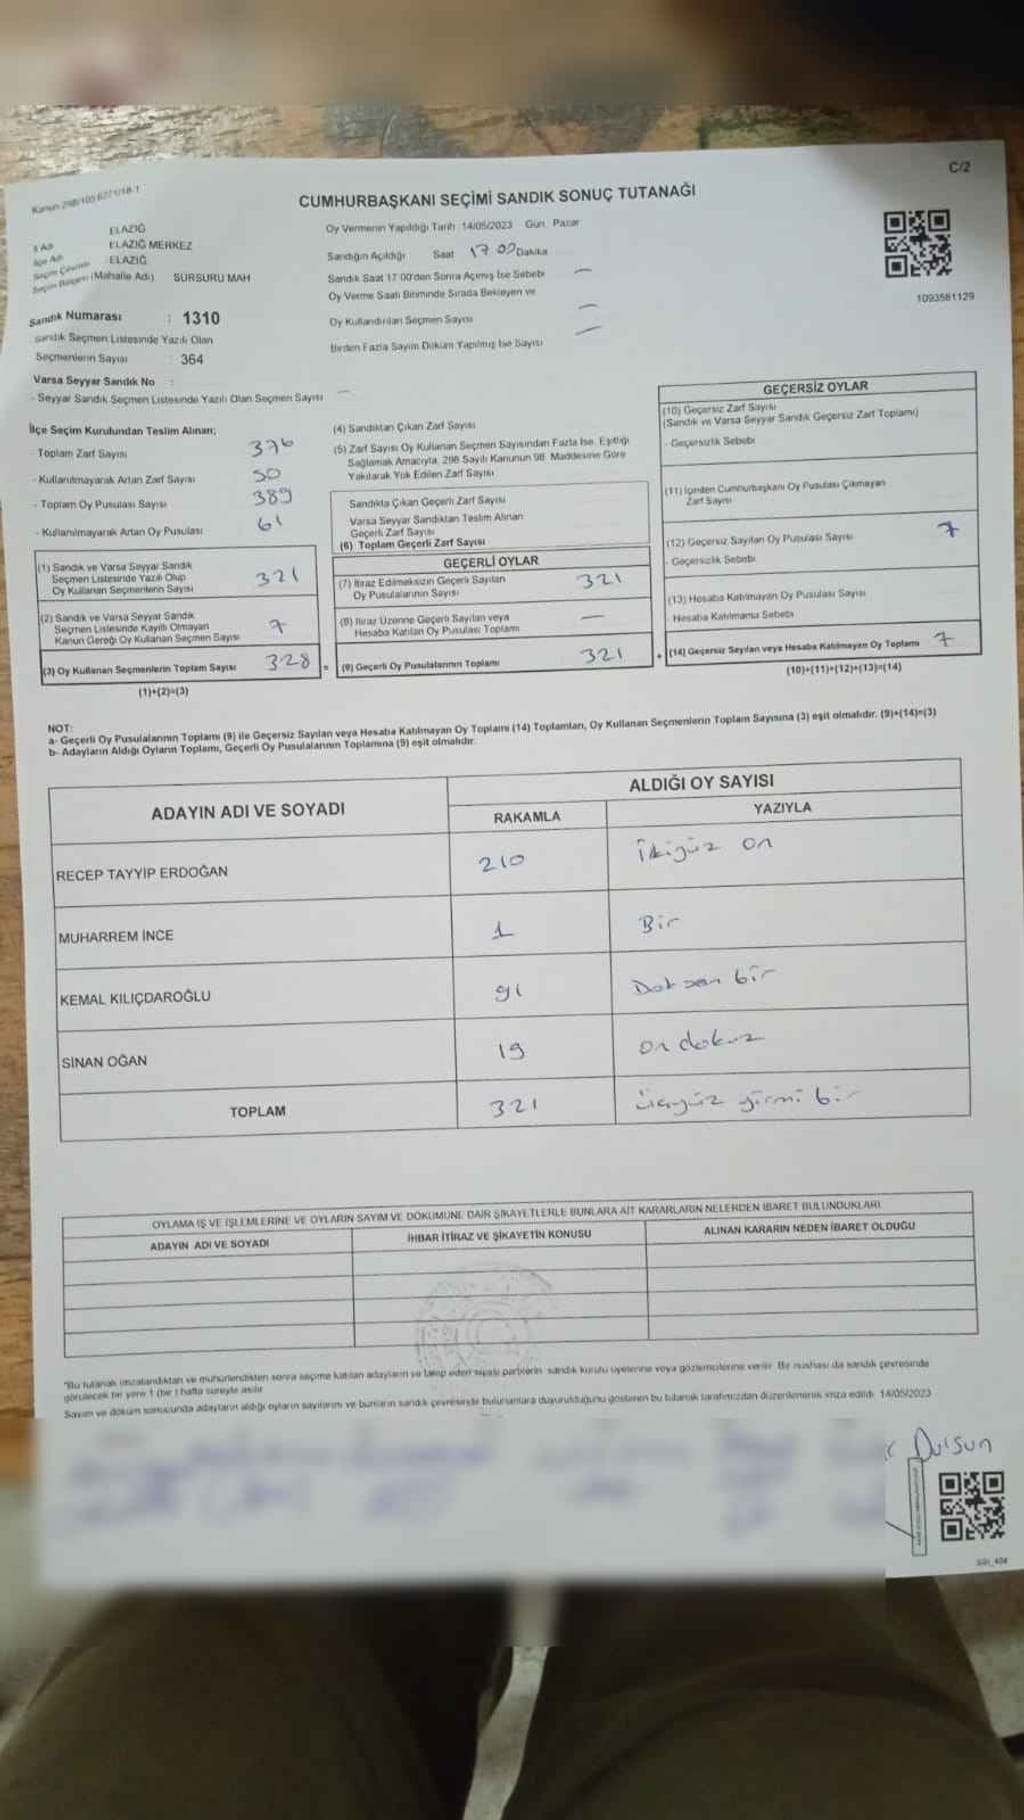 C/2
Kanun 298/105 6271/18-1
CUMHURBAŞKANI SEÇİMİ SANDIK SONUÇ TUTANAĞI
İl Adı ELAZIĞ
İlçe Adı ELAZIĞ MERKEZ
Seçim Çevresi ELAZIĞ
Seçim Bölgesi (Mahalle Adı) SÜRSÜRÜ MAH
Oy Vermenin Yapıldığı Tarih 14/05/2023 Gün Pazar
Sandığın Açıldığı Saat 17 00 Dakika
Sandık Saat 17 00'den Sonra Açılmış İse Sebebi —
Oy Verme Saati Bitiminde Sırada Bekleyen ve
Oy Kullandırılan Seçmen Sayısı —
Birden Fazla Sayım Döküm Yapılmış İse Sayısı —
1093581129
Sandık Numarası : 1310
Sandık Seçmen Listesinde Yazılı Olan
Seçmenlerin Sayısı : 364
Varsa Seyyar Sandık No :
- Seyyar Sandık Seçmen Listesinde Yazılı Olan Seçmen Sayısı —
İlçe Seçim Kurulundan Teslim Alınan;
- Toplam Zarf Sayısı 376
- Kullanılmayarak Artan Zarf Sayısı 50
- Toplam Oy Pusulası Sayısı 389
- Kullanılmayarak Artan Oy Pusulası 61
(1) Sandık ve Varsa Seyyar Sandık
Seçmen Listesinde Yazılı Olup
Oy Kullanan Seçmenlerin Sayısı 321
(2) Sandık ve Varsa Seyyar Sandık
Seçmen Listesinde Kayıtlı Olmayan
Kanun Gereği Oy Kullanan Seçmen Sayısı 7
(3) Oy Kullanan Seçmenlerin Toplam Sayısı 328 =
(1)+(2)=(3)
(4) Sandıktan Çıkan Zarf Sayısı
(5) Zarf Sayısı Oy Kullanan Seçmen Sayısından Fazla İse, Eşitliği
Sağlamak Amacıyla, 298 Sayılı Kanunun 98. Maddesine Göre
Yakılarak Yok Edilen Zarf Sayısı
Sandıkta Çıkan Geçerli Zarf Sayısı
Varsa Seyyar Sandıktan Teslim Alınan
Geçerli Zarf Sayısı
(6) Toplam Geçerli Zarf Sayısı
GEÇERLİ OYLAR
(7) İtiraz Edilmeksizin Geçerli Sayılan
Oy Pusulalarının Sayısı 321
(8) İtiraz Üzerine Geçerli Sayılan veya
Hesaba Katılan Oy Pusulası Toplamı —
(9) Geçerli Oy Pusulalarının Toplamı 321 +
GEÇERSİZ OYLAR
(10) Geçersiz Zarf Sayısı
(Sandık ve Varsa Seyyar Sandık Geçersiz Zarf Toplamı)
- Geçersizlik Sebebi
(11) İçinden Cumhurbaşkanı Oy Pusulası Çıkmayan
Zarf Sayısı
(12) Geçersiz Sayılan Oy Pusulası Sayısı 7
- Geçersizlik Sebebi
(13) Hesaba Katılmayan Oy Pusulası Sayısı
Hesaba Katılmama Sebebi
(14) Geçersiz Sayılan veya Hesaba Katılmayan Oy Toplamı 7
(10)+(11)+(12)+(13)=(14)
NOT:
a- Geçerli Oy Pusulalarının Toplamı (9) ile Geçersiz Sayılan veya Hesaba Katılmayan Oy Toplamı (14) Toplamları, Oy Kullanan Seçmenlerin Toplam Sayısına (3) eşit olmalıdır. (9)+(14)=(3)
b- Adayların Aldığı Oyların Toplamı, Geçerli Oy Pusulalarının Toplamına (9) eşit olmalıdır.
ADAYIN ADI VE SOYADI ALDIĞI OY SAYISI
RAKAMLA YAZIYLA
RECEP TAYYİP ERDOĞAN 210 İkiyüz on
MUHARREM İNCE 1 Bir
KEMAL KILIÇDAROĞLU 91 Doksan bir
SİNAN OĞAN 19 on dokuz
TOPLAM 321 üçyüz yirmi bir
OYLAMA İŞ VE İŞLEMLERİNE VE OYLARIN SAYIM VE DÖKÜMÜNE DAİR ŞİKAYETLERLE BUNLARA AİT KARARLARIN NELERDEN İBARET BULUNDUKLARI
ADAYIN ADI VE SOYADI İHBAR İTİRAZ VE ŞİKAYETİN KONUSU ALINAN KARARIN NEDEN İBARET OLDUĞU
"Bu tutanak imzalandıktan ve mühürlendikten sonra seçime katılan adayların ve talep eden siyasi partilerin sandık kurulu üyelerine veya gözlemcilerine verilir. Bir nüshası da sandık çevresinde
görülecek bir yere 1 (bir) hafta süreyle asılır
Sayım ve döküm sonucunda adayların aldığı oyların sayılarını ve bunların sandık çevresinde bulunanlara duyurulduğunu gösteren bu tutanak tarafımızdan düzenlenerek imza edildi. 14/05/2023
Dursun